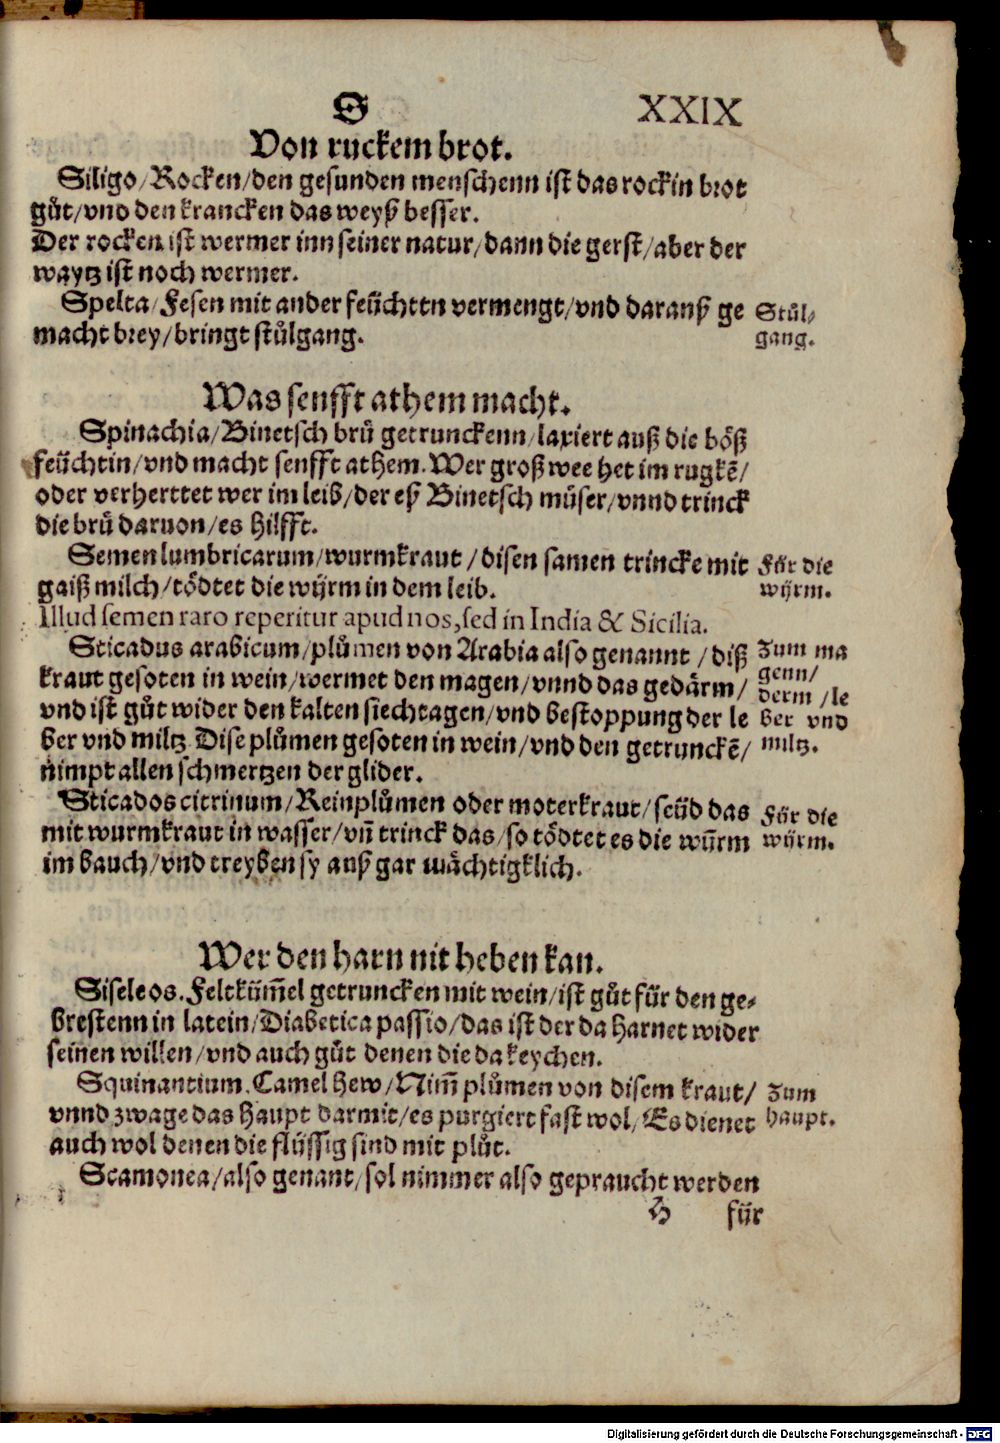 S XXIX
Von ruckem brot.
Siligo/Rocken/den gesunden menschenn ist das rockin brot
gůt/vnd den krancken das weyß besser.
Der rocken ist wermer inn seiner natur/dann die gerst/aber der
waytz ist noch wermer.
Spelta/Fesen mit ander feüchttn vermengt/vnd darauß ge
macht brey/bringt stůlgang.
Stůl/
gang.
Was senfft athem macht.
Spinachia/Binetsch brů getrunckenn/laxiert auß die böß
feüchtin/vnd macht senfft athem. Wer groß wee het im rugkē/
oder verherttet wer im leib/der eß Binetsch můser/vnnd trinck
die brů daruon/es hilfft.
Semen lumbricarum/wurmkraut/disen samen trincke mit
gaiß milch/tödtet die würm in dem leib.
Für die
würm.
Illud semen raro reperitur apud nos, sed in India & Sicilia.
Sticadus arabicum/plůmen von Arabia also genannt/diß
kraut gesoten in wein/wermet den magen/vnnd das gedärm/
vnd ist gůt wider den kalten siechtagen/vnd bestoppung der le
ber vnd miltz Dise plůmen gesoten in wein/vnd den getrunckē/
nimpt allen schmertzen der glider.
Zum ma
genn/
derm/le
ber vnd
miltz.
Sticados citrinum/Reinplůmen oder moterkraut/seüd das
mit wurmkraut in wasser/vn̄ trinck das/so tödtet es die würm
im bauch/vnd treyben sy auß gar mächtigklich.
Für die
würm.
Wer den harn nit heben kan.
Siseleos. Feltküm̄el getruncken mit wein/ist gůt für den ge-
brestenn in latein/Diabetica passio/das ist der da harnet wider
seinen willen/vnd auch gůt denen die da keychen.
Squinantium. Camel hew/Nim̄ plůmen von disem kraut/
vnnd zwage das haupt darmit/es purgiert fast wol/Es dienet
auch wol denen die flüssig sind mit plůt.
Zum
haupt.
Scamonea/also genant/sol nimmer also gepraucht werden
H für
Digitalisierung gefördert durch die Deutsche Forschungsgemeinschaft - DFG